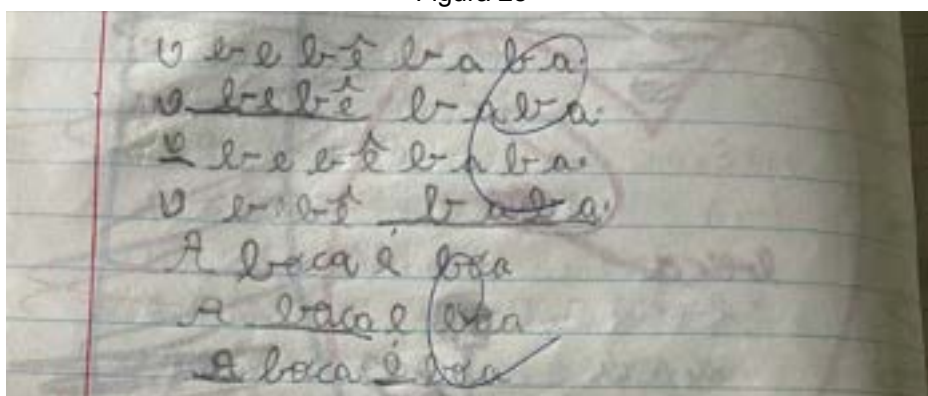 O bebê baba.
O bebê baba.
O bebê baba.
O bebê baba.
A boca é boa
A boca e boa
A boca é boa